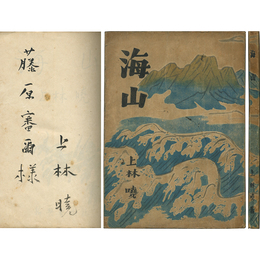 藤原審爾様
上林暁
海山
上林暁